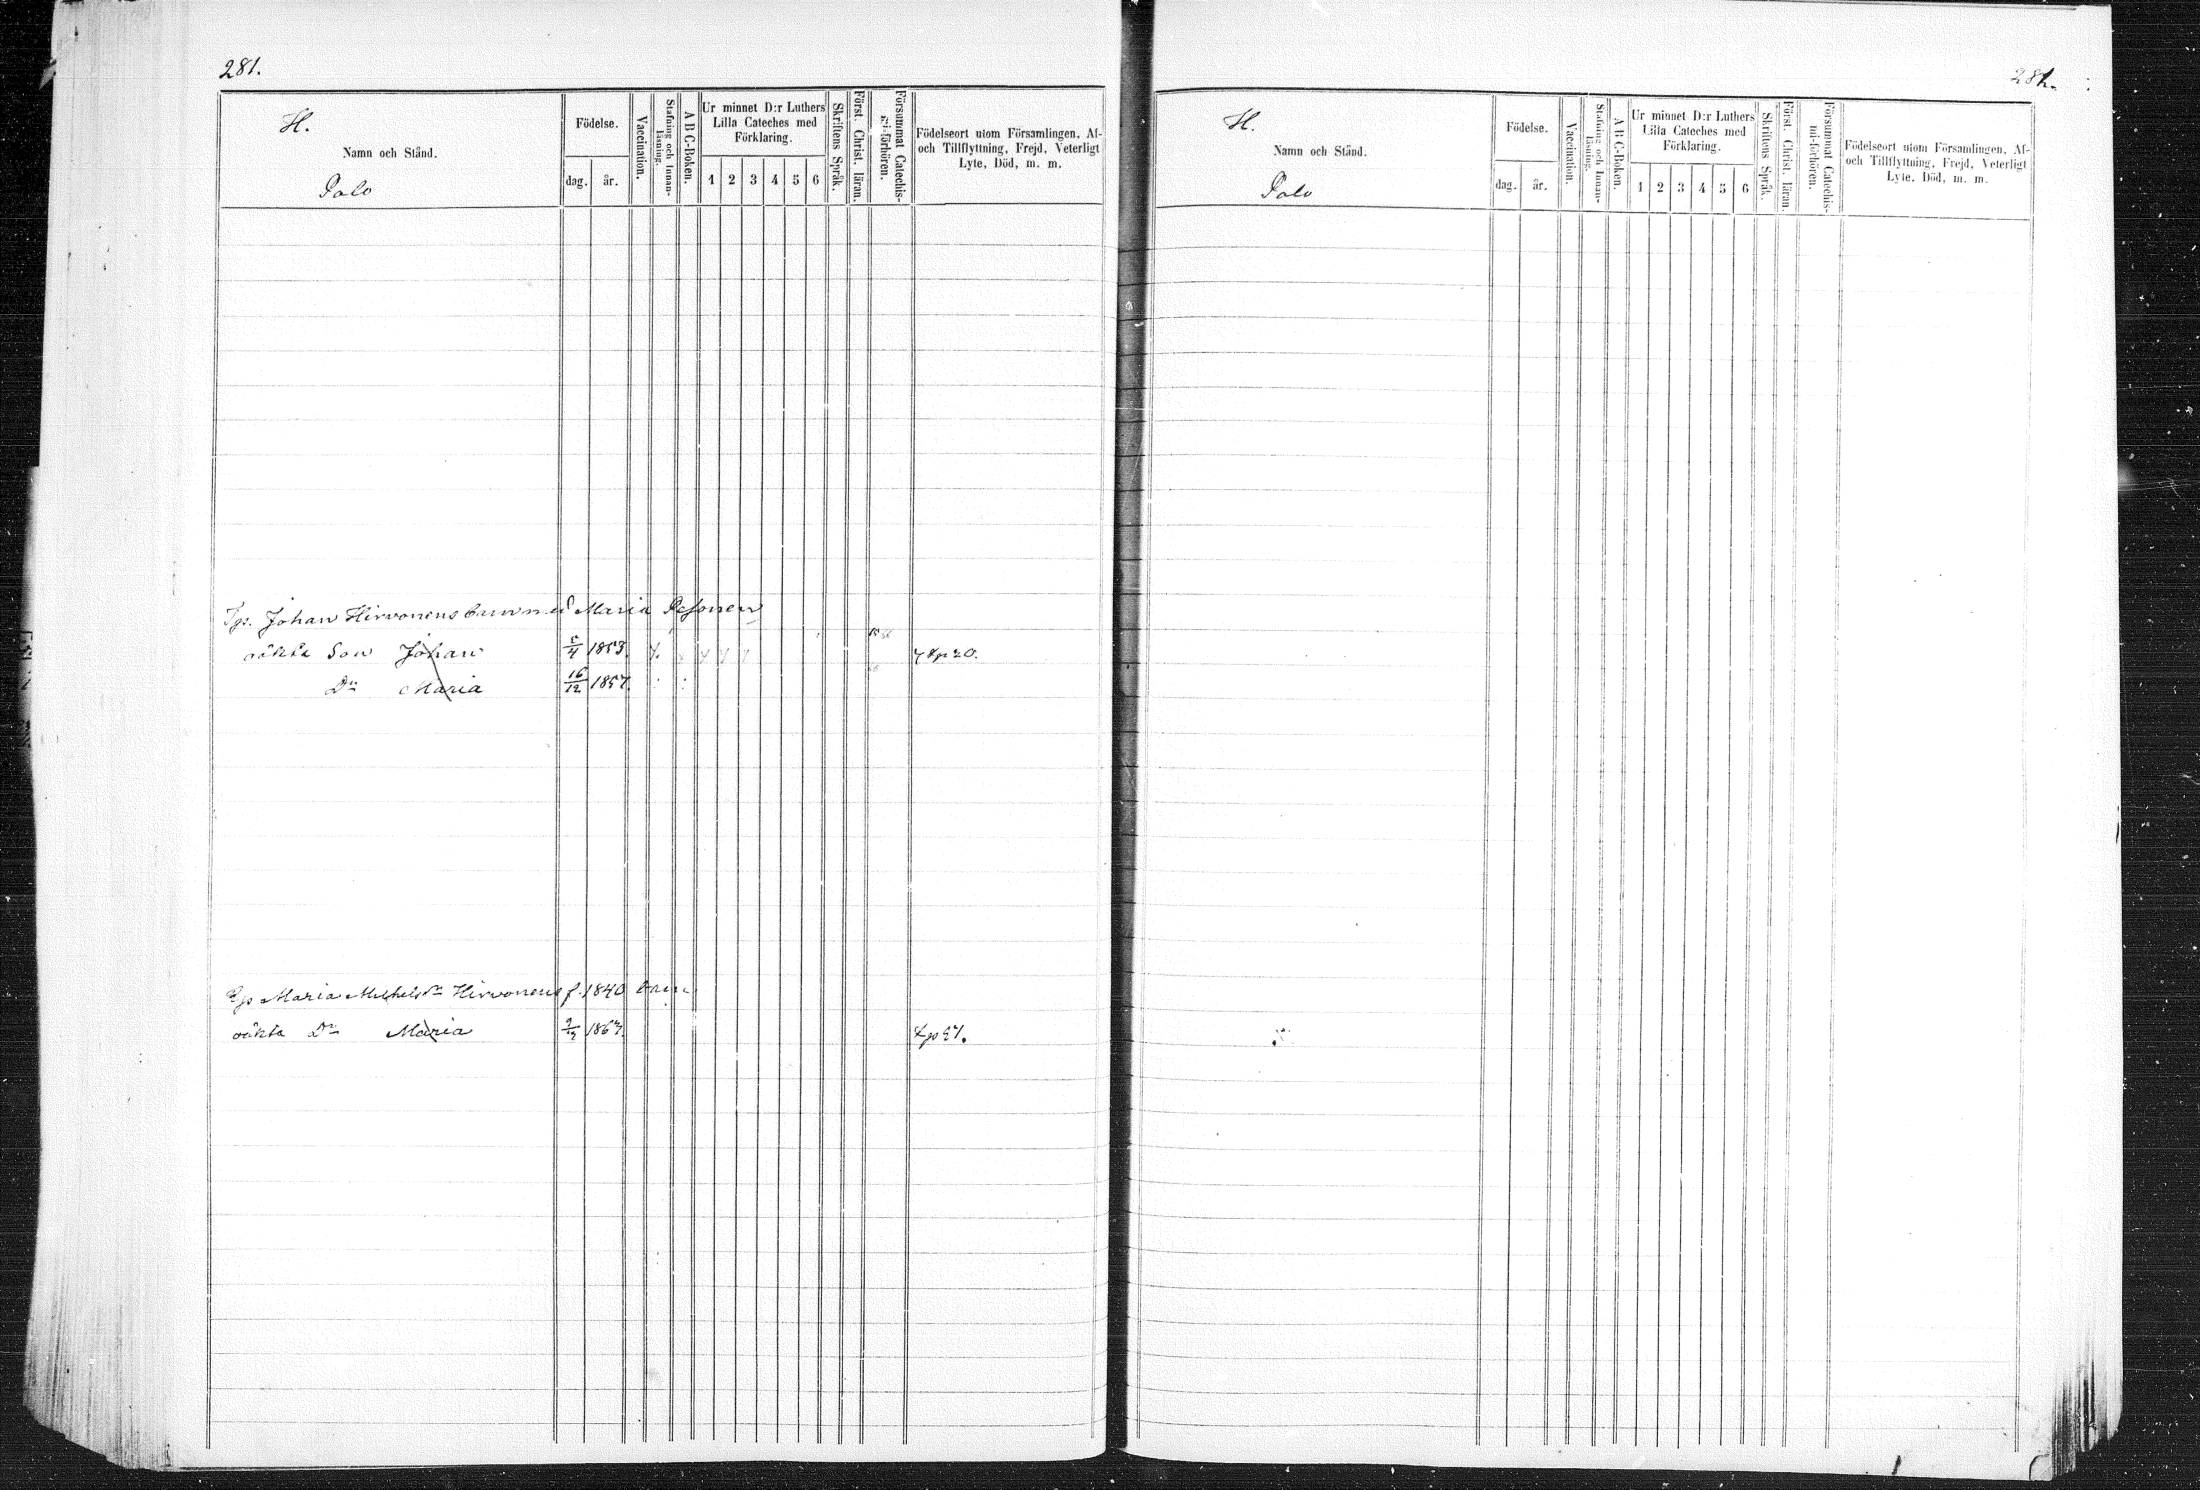 281.
H.
Namn och Stånd.
Polo
Födelse.
dag. år.
Vaccination.
Stafning och Innan-läsning.
A B C-Boken.
Ur minnet D:r Luthers
Lilla Cateches med
Förklaring.
1 2 3 4 5 6
Skriftens Språk.
Först. Christ. läran.
Försummat Catechis-
mi-förhören.
Födelseort utom Församlingen, Af-
och Tillflyttning, Frejd, Veterligt
Lyte, Död, m. m.
Johan Hirvonens barn med Maria
oäkta Son Johan 5/4 1853.
Dr Maria 16/12 1857.
Maria Michelsdr Hirvonens f. 1840 barn
oäkta Dr Maria 1863.
H.
Namn och Stånd.
Polo
Födelse.
dag. år.
Vaccination.
Stafning och Innan-läsning.
A B C-Boken.
Ur minnet D:r Luthers
Lilla Cateches med
Förklaring.
1 2 3 4 5 6
Skriftens Språk.
Först. Christ. läran.
Försummat Catechis-
mi-förhören.
Födelseort utom Församlingen, Af-
och Tillflyttning, Frejd, Veterligt
Lyte. Död, m. m.